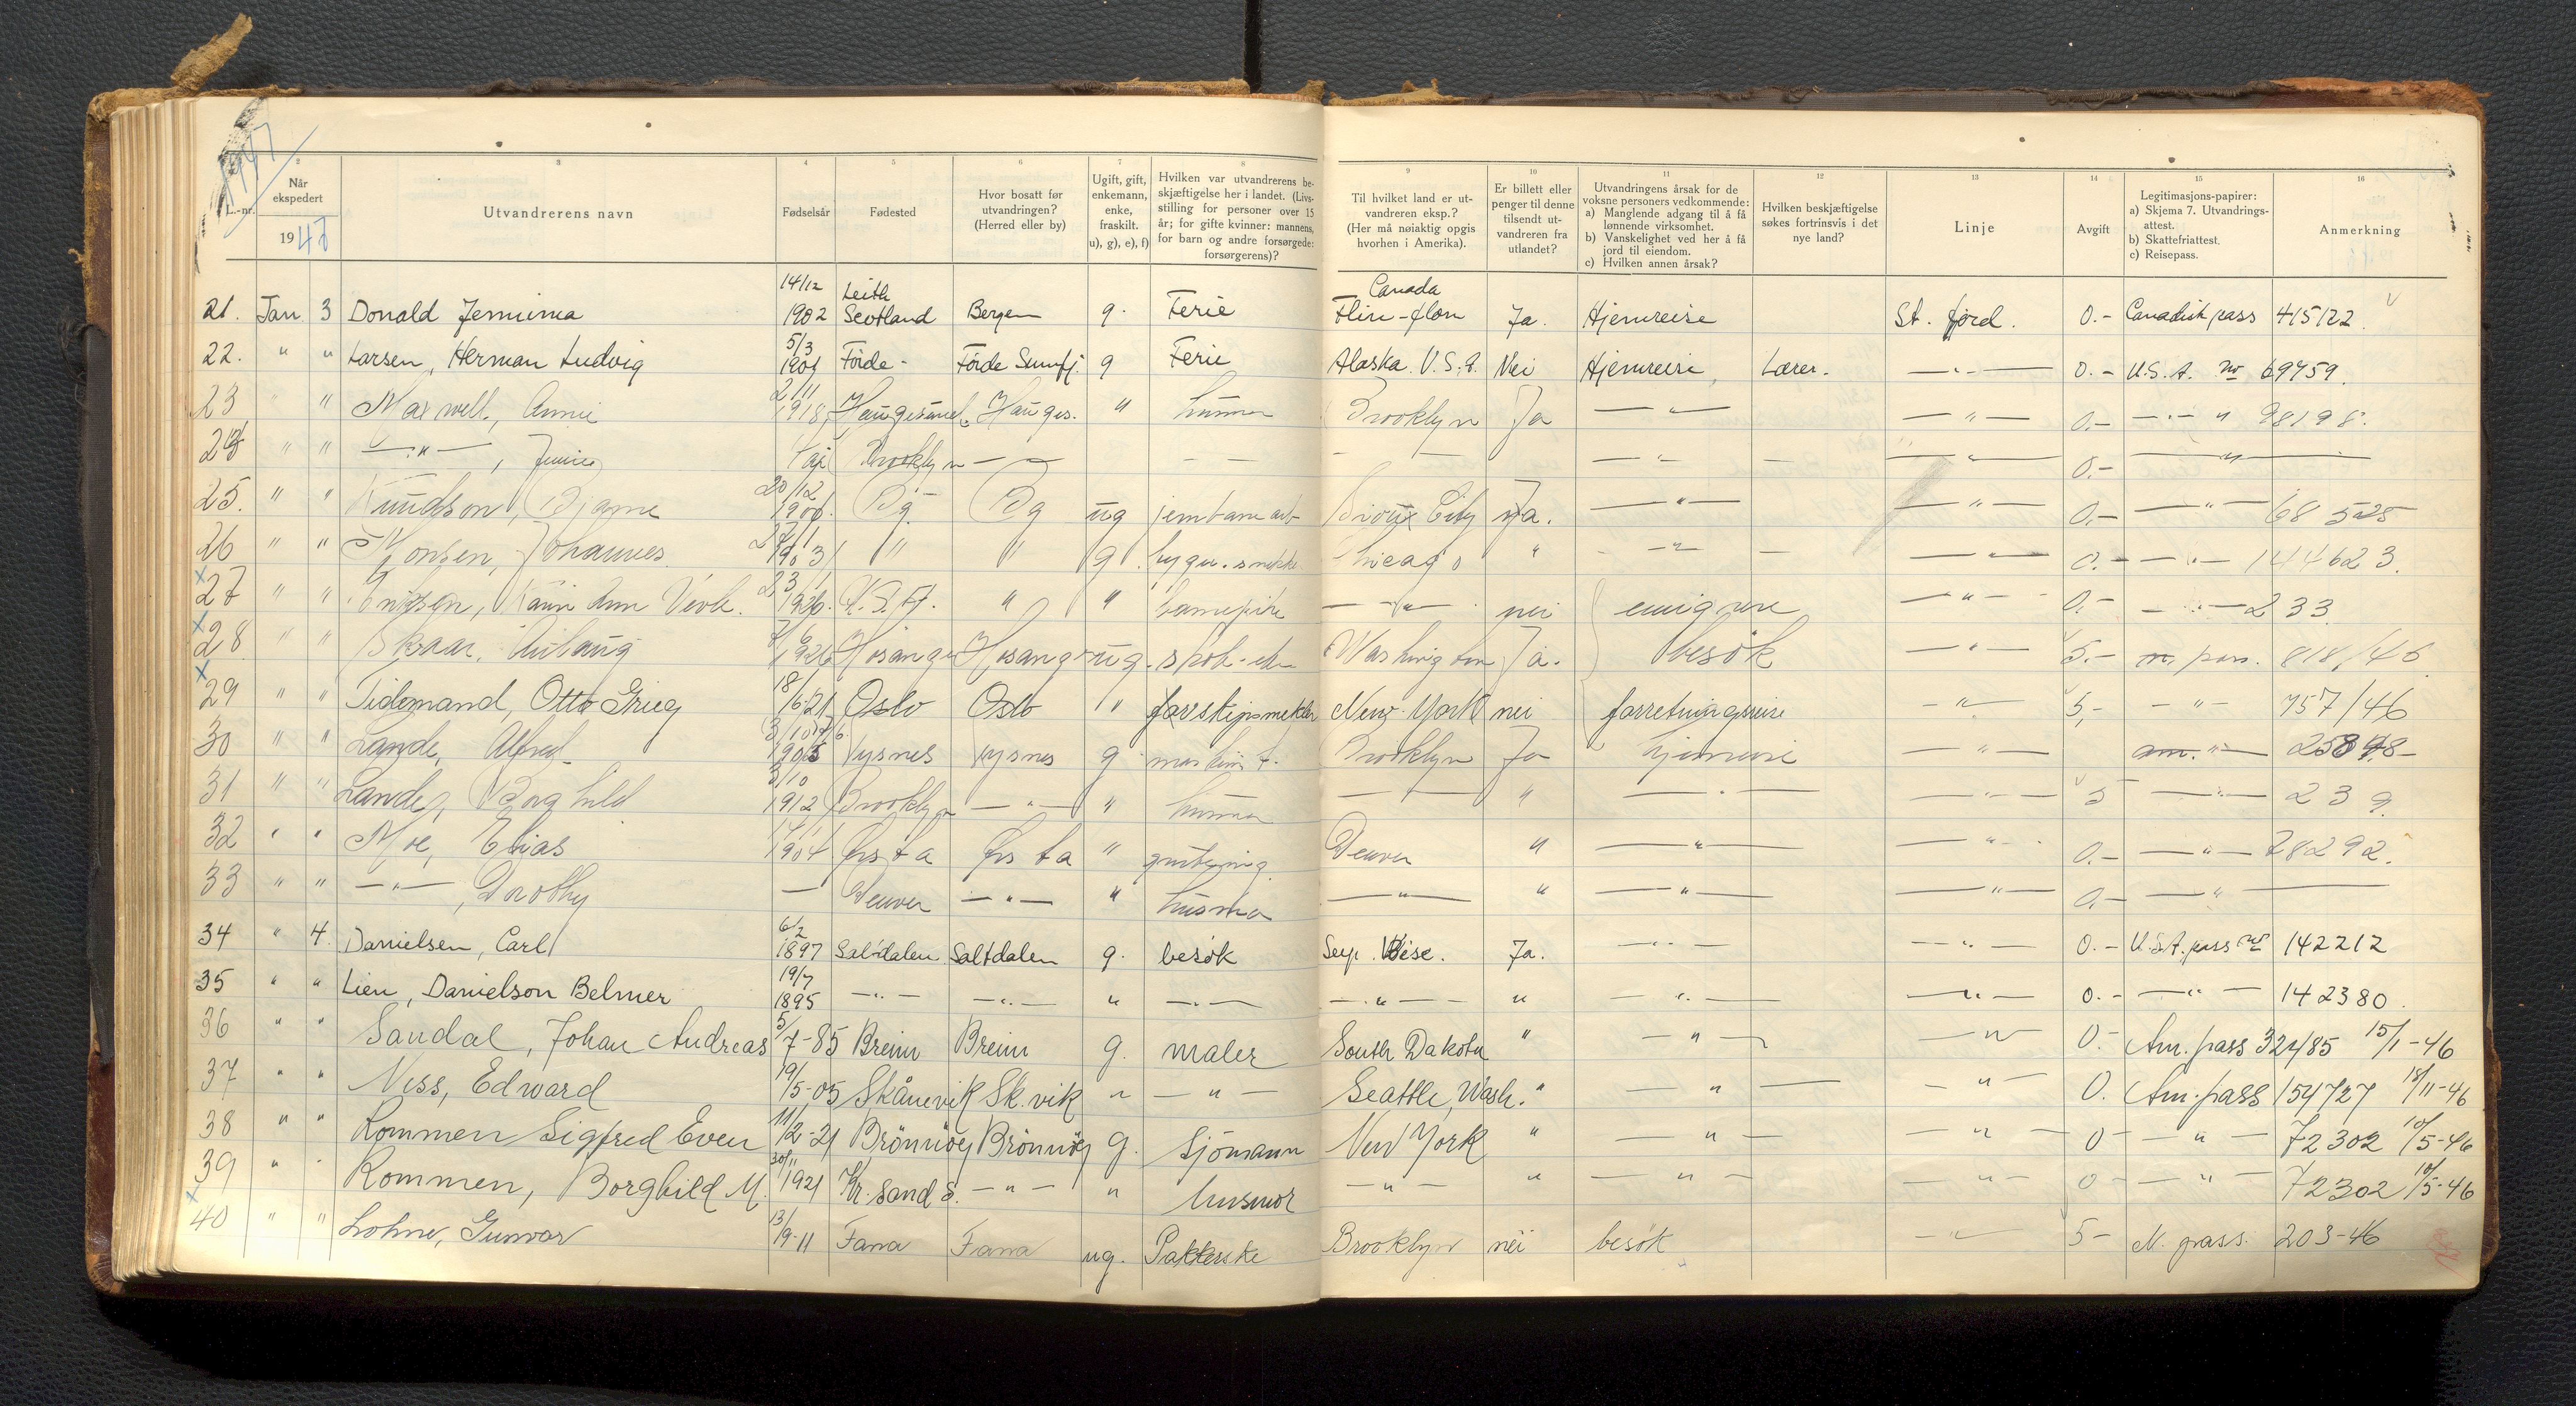 1947
L.-nr.
2
Når ekspedert
1947
3
Utvandrerens navn
4
Fødselsår
5
Fødested
6
Hvor bosatt før utvandringen? (Herred eller by)
7
Ugift, gift, enkemann, enke, fraskilt. u), g), e), f)
8
Hvilken var utvandrerens beskjæftigelse her i landet. (Livsstilling for personer over 15 år; for gifte kvinner: mannens, for barn og andre forsørgede: forsørgerens)?
9
Til hvilket land er utvandreren eksp.? (Her må nøiaktig opgis hvorhen i Amerika).
10
Er billett eller penger til denne tilsendt utvandreren fra utlandet?
11
Utvandringens årsak for de voksne personers vedkommende: a) Manglende adgang til å få lønnende virksomhet. b) Vanskelighet ved her å få jord til eiendom. c) Hvilken annen årsak?
12
Hvilken beskjæftigelse søkes fortrinsvis i det nye land?
13
Linje
14
Avgift
15
Legitimasjons-papirer: a) Skjema 7. Utvandrings-attest. b) Skattefriattest. c) Reisepass.
16
Anmerkning
21. Jan 3 Donald Jemima 14/12 1902 Leith Scotland Bergen g. Ferie Canada Flin-flon Ja. Hjemreise St. fjord. 0.- Canadisk pass 415122
22. " " Larsen, Herman Ludvig 5/3 1909 Förde - Förde Sunnfj. g Ferie Alaska U.S.A. Nei Hjemreise Lærer. —"— 0.- U.S.A. no 69759.
23 " " Maxwell, Annie 2/11 1918 Haugesund Hauges. " husmor Brooklyn Ja —"— —"— 0.- —"— " 98198.
24 " " —"—, Brooklyn — — —"— —"— 0.- —"—
25. " " Knudson, Bjarne 20/12 1906 Bg Bg ug Sioux City Ja. —"— —"— 0.- —"— 68 525
26 " " Monsen, Johannes 1903 " " g. Chicago " —"— —"— 0.- —"— 144623.
27 " " U.S.A. " " barnepike —"— nei —"— 0.- —"— 233
28 " " Skaar, 1926 Hosanger Hosanger ug. Washington Ja. besök —"— 5.- n. pass. 818/46
29 " " Tidemand, Otto Grieg 18/6 21 Oslo Oslo " New-York nei forretningsreise —"— 5,- —"— 757/46
30 " " Lande, Alfred 1905 Vysnes Vysnes g Brooklyn Ja hjemreise —"— am. "—
31 " " Lande, Borghild 3/10 1912 Brooklyn —"— " husmor — — " —"— —"— 5 —"— 239
32 " " Moe, Elias 1904 Örsta Örsta " Denver " —"— —"— 0.- —"— 78292.
33 " " —"—, Dorothy — Denver —"— " husmor —"— " —"— —"— 0.- —"—
34 " 4. Danielsen, Carl 6/2 1897 Saltdalen Saltdalen g. besök Sup. Wise. Ja. —"— —"— 0.- U.S.A. pass no 142212
35 " " Lien, Danielson Belmer 19/7 1895 —"— —"— " —"— —"— " —"— —"— 0.- —"— 142380.
36 " " Sandal, Johan Andreas 5/7-85 Breim Breim g. maler South Dakota " —"— —"— 0.- Am. pass 32485 15/1-46
37 " " Ness, Edward 19/5-05 Skånevik Sk.vik " —"— Seattle, Wash. " —"— — —"— 0. Am. pass 154727 18/11-46
38 " " Rommen Sigfred Even 11/2-21 Brönnöy Brönnöy g. Sjömann New York " —"— —"— 0 —"— 72302 10/5-46
39 " " Rommen, Borghild M. 30/11 1921 Kr.sand S. —"— " husmor —"— " —"— —"— 0 —"— 72302 10/5-46
40 " " Lohne, Gunvor 13/9-11 Fana Fana ug. Pakkerske Brooklyn nei besök —"— 5- N. pass. 203-46